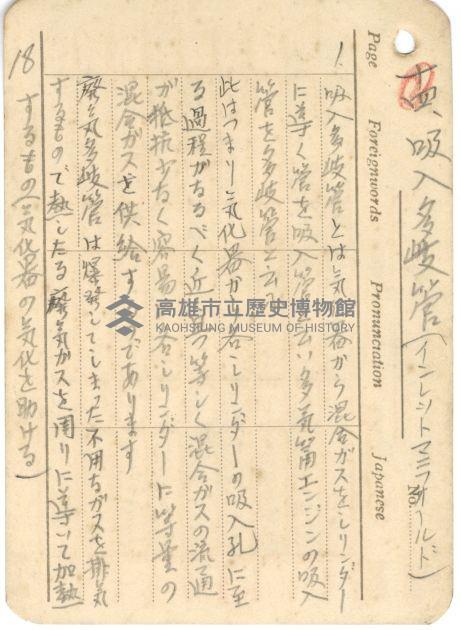 Page Foreignwords Pronunciation Japanese
吸入多岐管(インレットマニフォールド)
1. 吸入多岐管とは気化器から混合ガスをシリンダー
に導く管を吸入管と云い多気筒エンジンの吸入
管を多岐管と云う
此はつまり気化器から各シリンダーの吸入孔に至
る過程がなるべく近且つ等しく混合ガスの流通
が抵抗少なく容易に各シリンダーに等量の
混合ガスを供給するのであります
廃気多岐管は爆発してしまった不用なガスを排気
するもので熱したる廃気ガスを周りに導いて加熱
するもの(気化器の気化を助ける)
18
高雄市立歷史博物館
KAOHSIUNG MUSEUM OF HISTORY